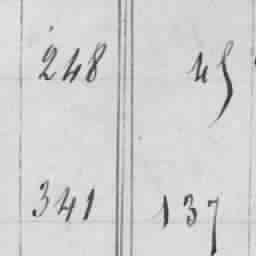 248 45
341 137